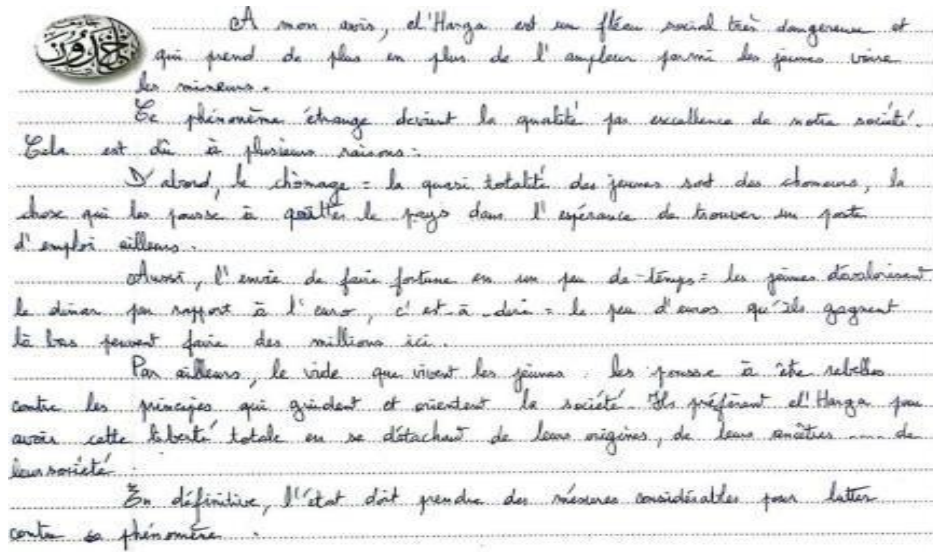 A mon avis, el'Harga est un fléau social très dangereux et
qui prend de plus en plus de l'ampleur parmi les jeunes voire
les mineurs.
Ce phénomène étrange devient la qualité par excellence de notre société.
Cela est dû à plusieurs raisons :
D'abord, le chômage = la quasi totalité des jeunes sont des chomeurs, la
chose qui les pousse à quitter le pays dans l'espérance de trouver un poste
d'emploi ailleurs.
Aussi, l'envie de faire fortune en un peu de-temps = les jeunes dévalorisent
le dinar par rapport à l'euro, c'est-à-dire = le peu d'euros qu'ils gagnent
là bas peuvent faire des millions ici.
Par ailleurs, le vide que vivent les jeunes les pousse à être rebelles
contre les principes qui guident et orientent la société. Ils préfèrent el'Harga pour
avoir cette liberté totale en se détachant de leurs origines, de leurs ancêtres .... de
leur société.
En définitive, l'état doit prendre des mésures considérables pour lutter
contre ce phénomène.